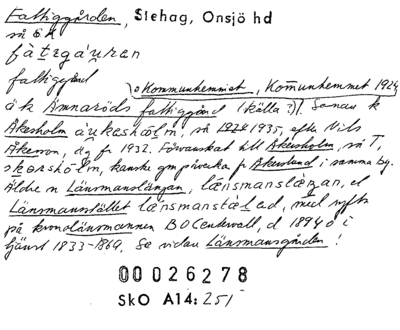 Fattiggården, Stehag, Onsjö hd
så ek
fàtɪgǻuren
fattiggård
o Kommunhemmet, Kommunhemmet 1924
äk Amnaröds fattiggård (källa?). Senare k
Åkesholm, så 1924 1935, efter Nils
Åkesson, äg fr 1932. Förvanskat till Akersholm, så T,
kanske gm påverkan fr Åkerlund i samma by.
Äldre n Länsmanslängan, länsmanslæŋan, el
Länsmansstället, med syftn
på kronolänsmannen B O Centerwall, d 1894 o i
tjänst 1833-1869. Se vidare Länsmansgården!
00026278
SkO A14: 251